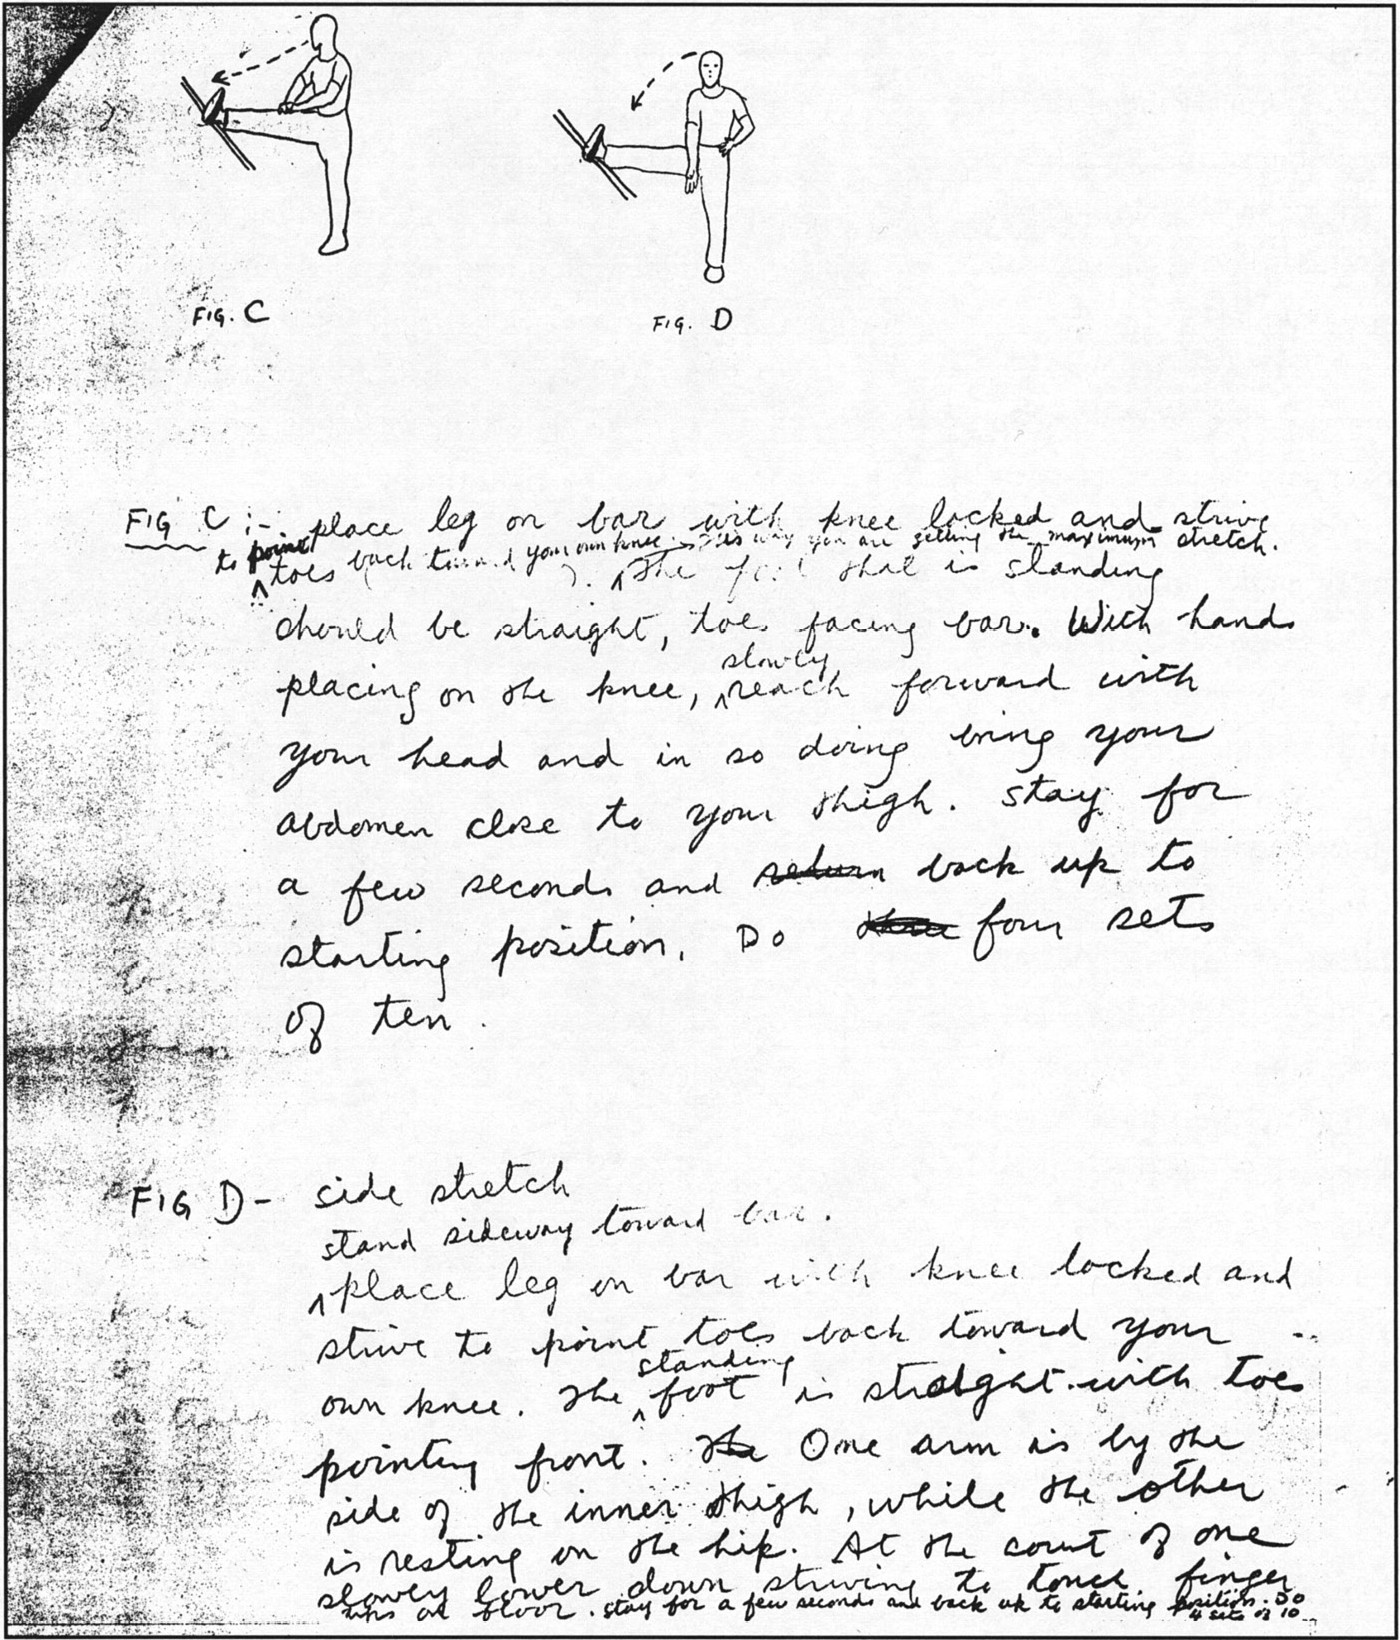 FIG. C
FIG. D
FIG C :- place leg on bar with knee locked and strive
to point back toward your own knee. This way you are getting the maximum stretch.
toes ( ). The foot that is standing
should be straight, toes facing bar. With hands
slowly
placing on the knee, reach forward with
your head and in so doing bring your
abdomen close to your thigh. Stay for
a few seconds and return back up to
starting position. Do three four sets
of ten.
FIG D - side stretch
stand sideway toward bar.
place leg on bar with knee locked and
strive to point toes back toward your
standing
own knee. The foot is straight with toes
pointing front. The One arm is by the
side of the inner thigh, while the other
is resting on the hip. At the count of one
slowly lower down striving to touch finger
tips on floor. stay for a few seconds and back up to starting position. Do
4 sets of 10